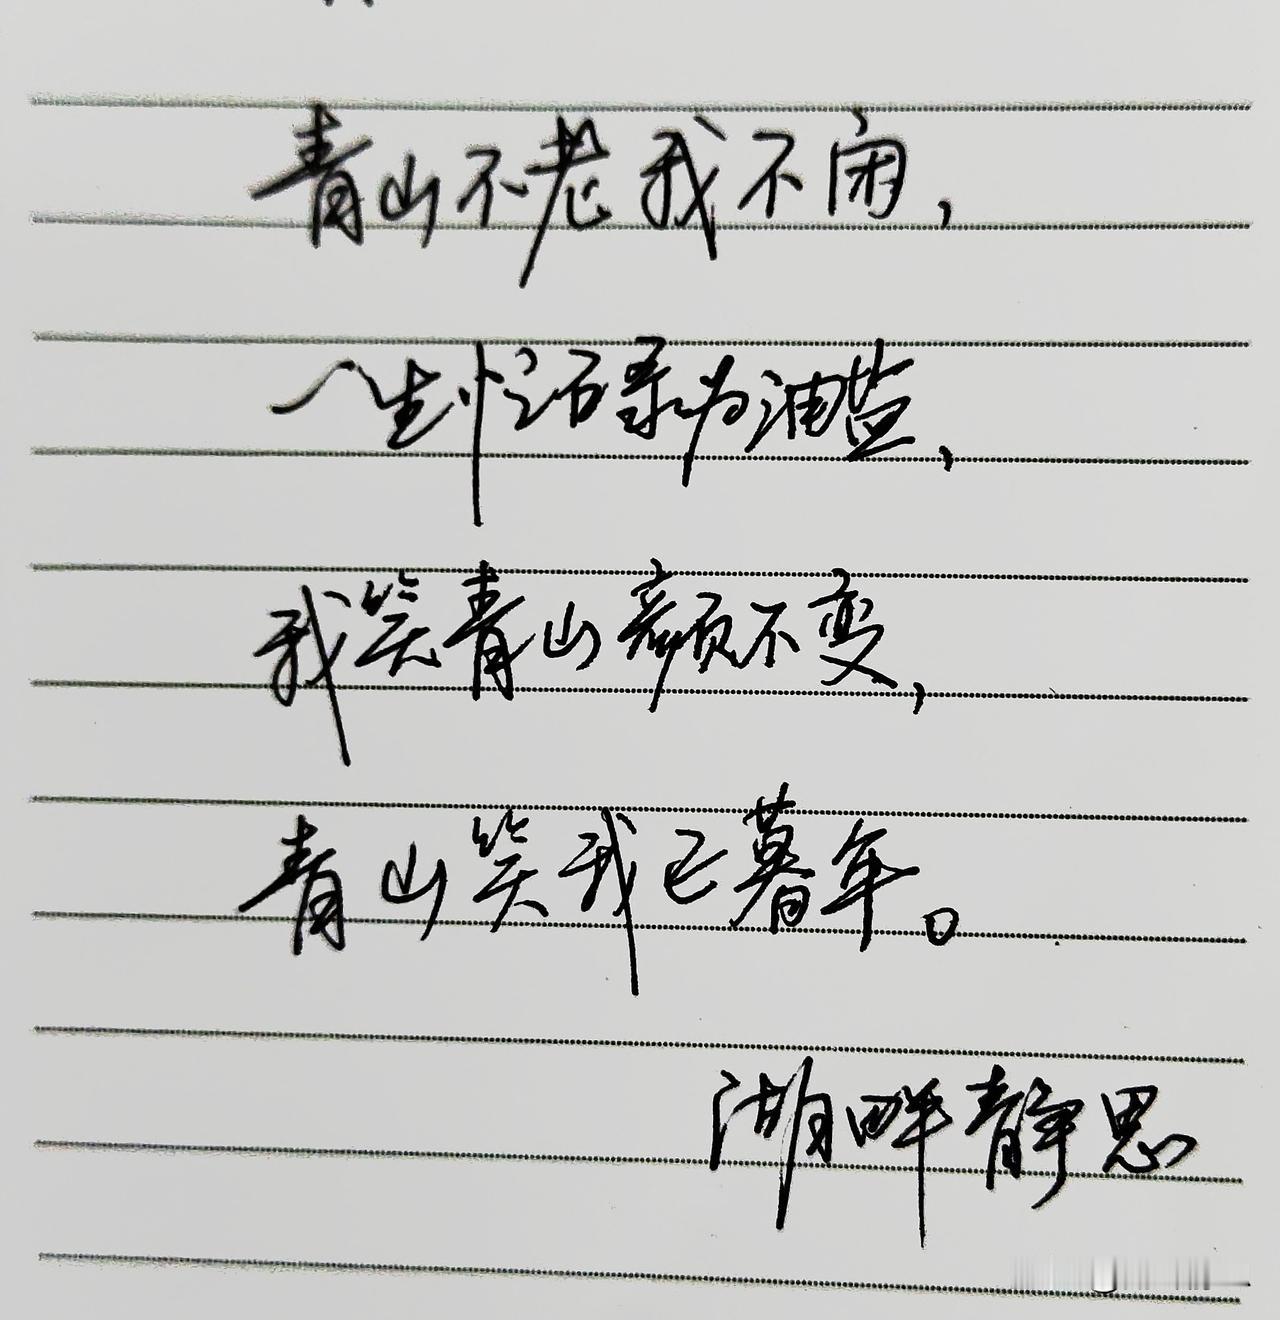 青山不老我不闲，
一生忙碌为油盐，
我笑青山颜不变，
青山笑我已暮年。
湖畔静思